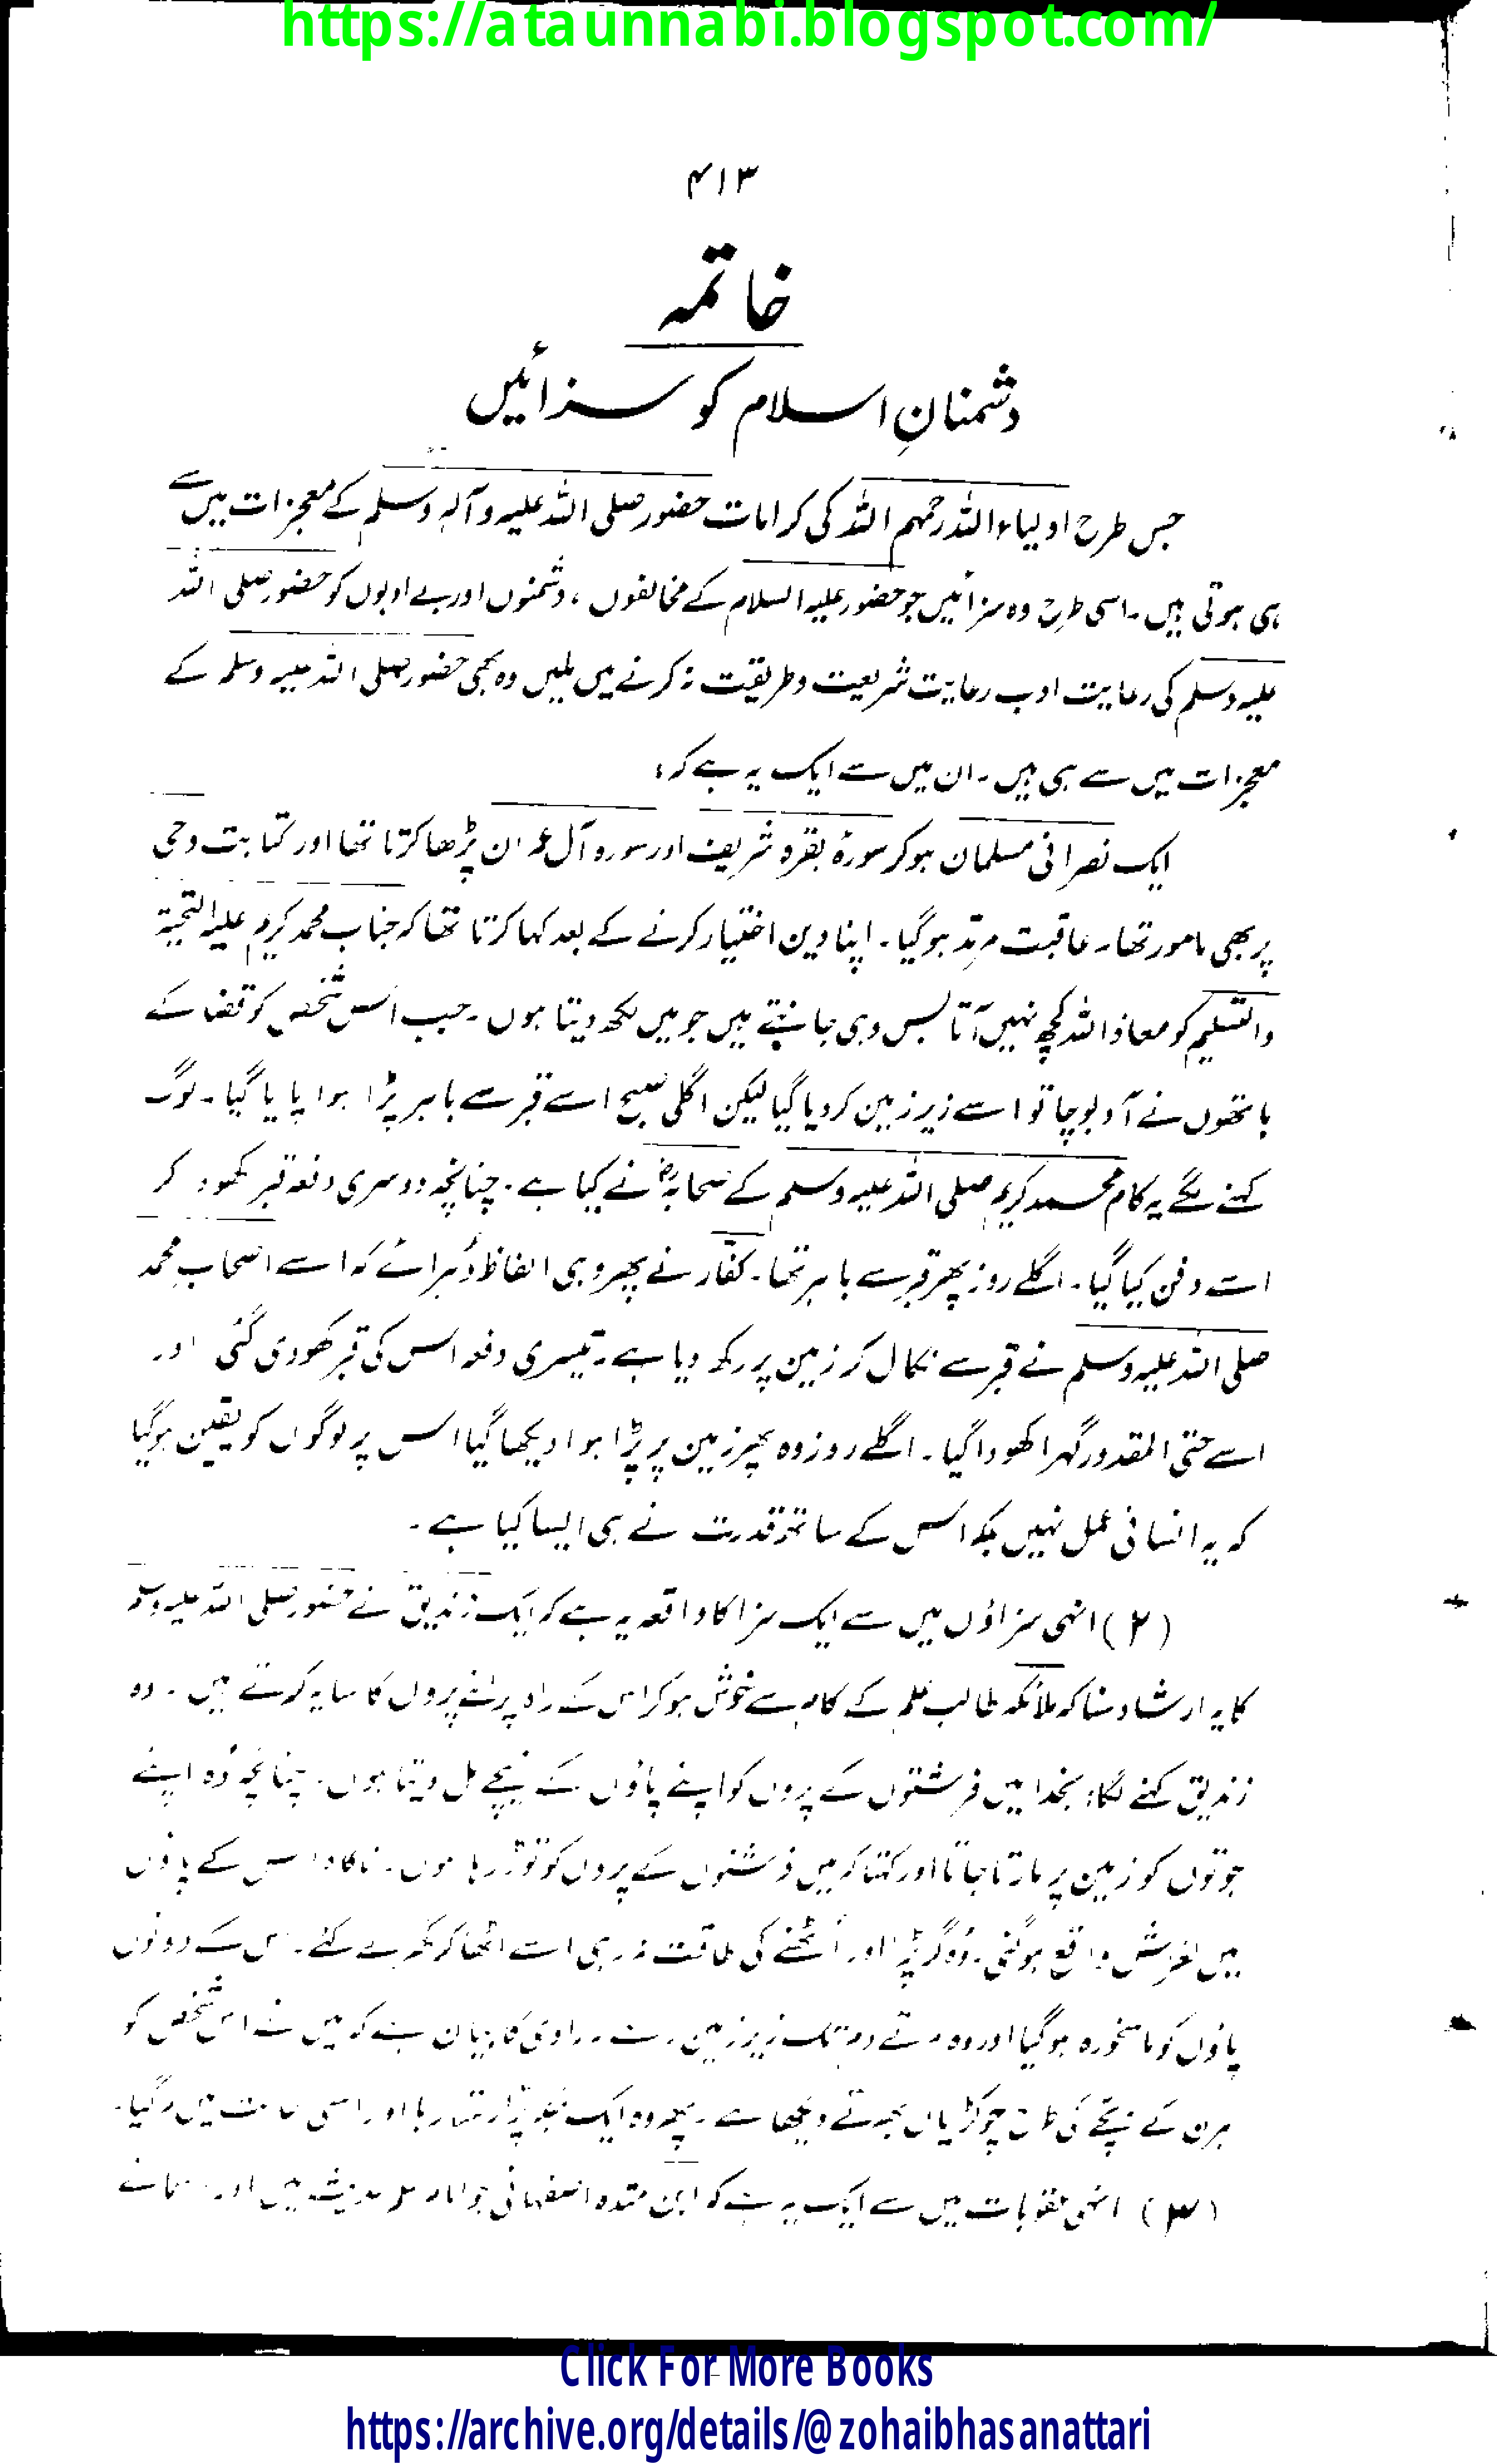 https://ataunnabi.blogspot.com/
۴۱۳
خاتمہ
دشمنانِ اسلام کو سزائیں
جس طرح اولیاء اللہ رحمہم اللہ کی کرامات حضور صلی اللہ علیہ وآلہٖ وسلم کے معجزات میں سے
ہی ہوتی ہیں۔ اسی طرح وہ سزائیں جو حضور علیہ السلام کے مخالفوں، دشمنوں اور بے ادبوں کو حضور صلی اللہ
علیہ وسلم کی رعایت ادب رعایت شریعت و طریقت نہ کرنے میں ملیں وہ بھی حضور صلی اللہ علیہ وسلم کے
معجزات میں سے ہی ہیں۔ ان میں سے ایک یہ ہے کہ:
ایک نصرانی مسلمان ہو کر سورۂ بقرہ شریف اور سورہ آل عمران پڑھا کرتا تھا اور کتابت وحی
پر بھی مامور تھا۔ عاقبت مرتد ہو گیا۔ اپنا دین اختیار کرنے کے بعد کہا کرتا تھا کہ جناب محمد کریم علیہ التحیۃ
والتسلیم کو معاذ اللہ کچھ نہیں آتا بس وہی جانتے ہیں جو میں لکھ دیتا ہوں۔ جب اس شخص کو قضا کے
ہاتھوں نے آ دبوچا تو اسے زیر زمین کر دیا گیا لیکن اگلی صبح اسے قبر سے باہر پڑا ہوا پایا گیا۔ لوگ
کہنے لگے یہ کام محمد کریم صلی اللہ علیہ وسلم کے صحابہؓ نے کیا ہے۔ چنانچہ دوسری دفعہ قبر کھود کر
اسے دفن کیا گیا۔ اگلے روز پھر قبر سے باہر تھا۔ کفّار نے پھر وہی الفاظ دُہرائے کہ اسے اصحابِ محمد
صلی اللہ علیہ وسلم نے قبر سے نکال کر زمین پر رکھ دیا ہے۔ تیسری دفعہ اس کی قبر کھودی گئی اور
اسے حتی المقدور گہرا کھودا گیا۔ اگلے روز وہ پھر زمین پر پڑا ہوا دیکھا گیا اس پر لوگوں کو یقین ہو گیا
کہ یہ انسانی عمل نہیں بلکہ اس کے ساتھ قدرت نے ہی ایسا کیا ہے۔
(۲) انہی سزاؤں میں سے ایک سزا کا واقعہ یہ ہے کہ ایک زندیق نے حضور صلی اللہ علیہ وسلم
کا یہ ارشاد سنا کہ ملائکہ طالب علم کے کام سے خوش ہو کر اس کے راہ پر اپنے پروں کا سایہ کرتے ہیں۔ وہ
زندیق کہنے لگا: بخدا میں فرشتوں کے پروں کو اپنے پاؤں کے نیچے مل دیتا ہوں۔ چنانچہ وُہ اپنے
جوتوں کو زمین پر مارتا جاتا اور کہتا کہ میں فرشتوں کے پروں کو توڑ رہا ہوں۔ ناگاہ اس کے پاؤں
میں لغزش واقع ہو گئی۔ وُہ گر پڑا اور اُٹھنے کی طاقت نہ رہی اسے اٹھا کر گھر لے گئے۔ اس کے دونوں
پاؤں کو ماسخورہ ہو گیا اور وہ مرتے دم تک زیر زمین۔ راوی کا بیان ہے کہ میں نے اس شخص کو
ہرن کے بچے کی طرح چوکڑیاں بھرتے دیکھا ہے۔ پھر وہ ایک جگہ پڑا رہا اور اسی حالت میں مر گیا۔
(۳) انہی عقوبات میں سے ایک یہ ہے کہ ابن مندہ اصفہانی جو امام علم حدیث ہیں اور
Click For More Books
https://archive.org/details/@zohaibhasanattari